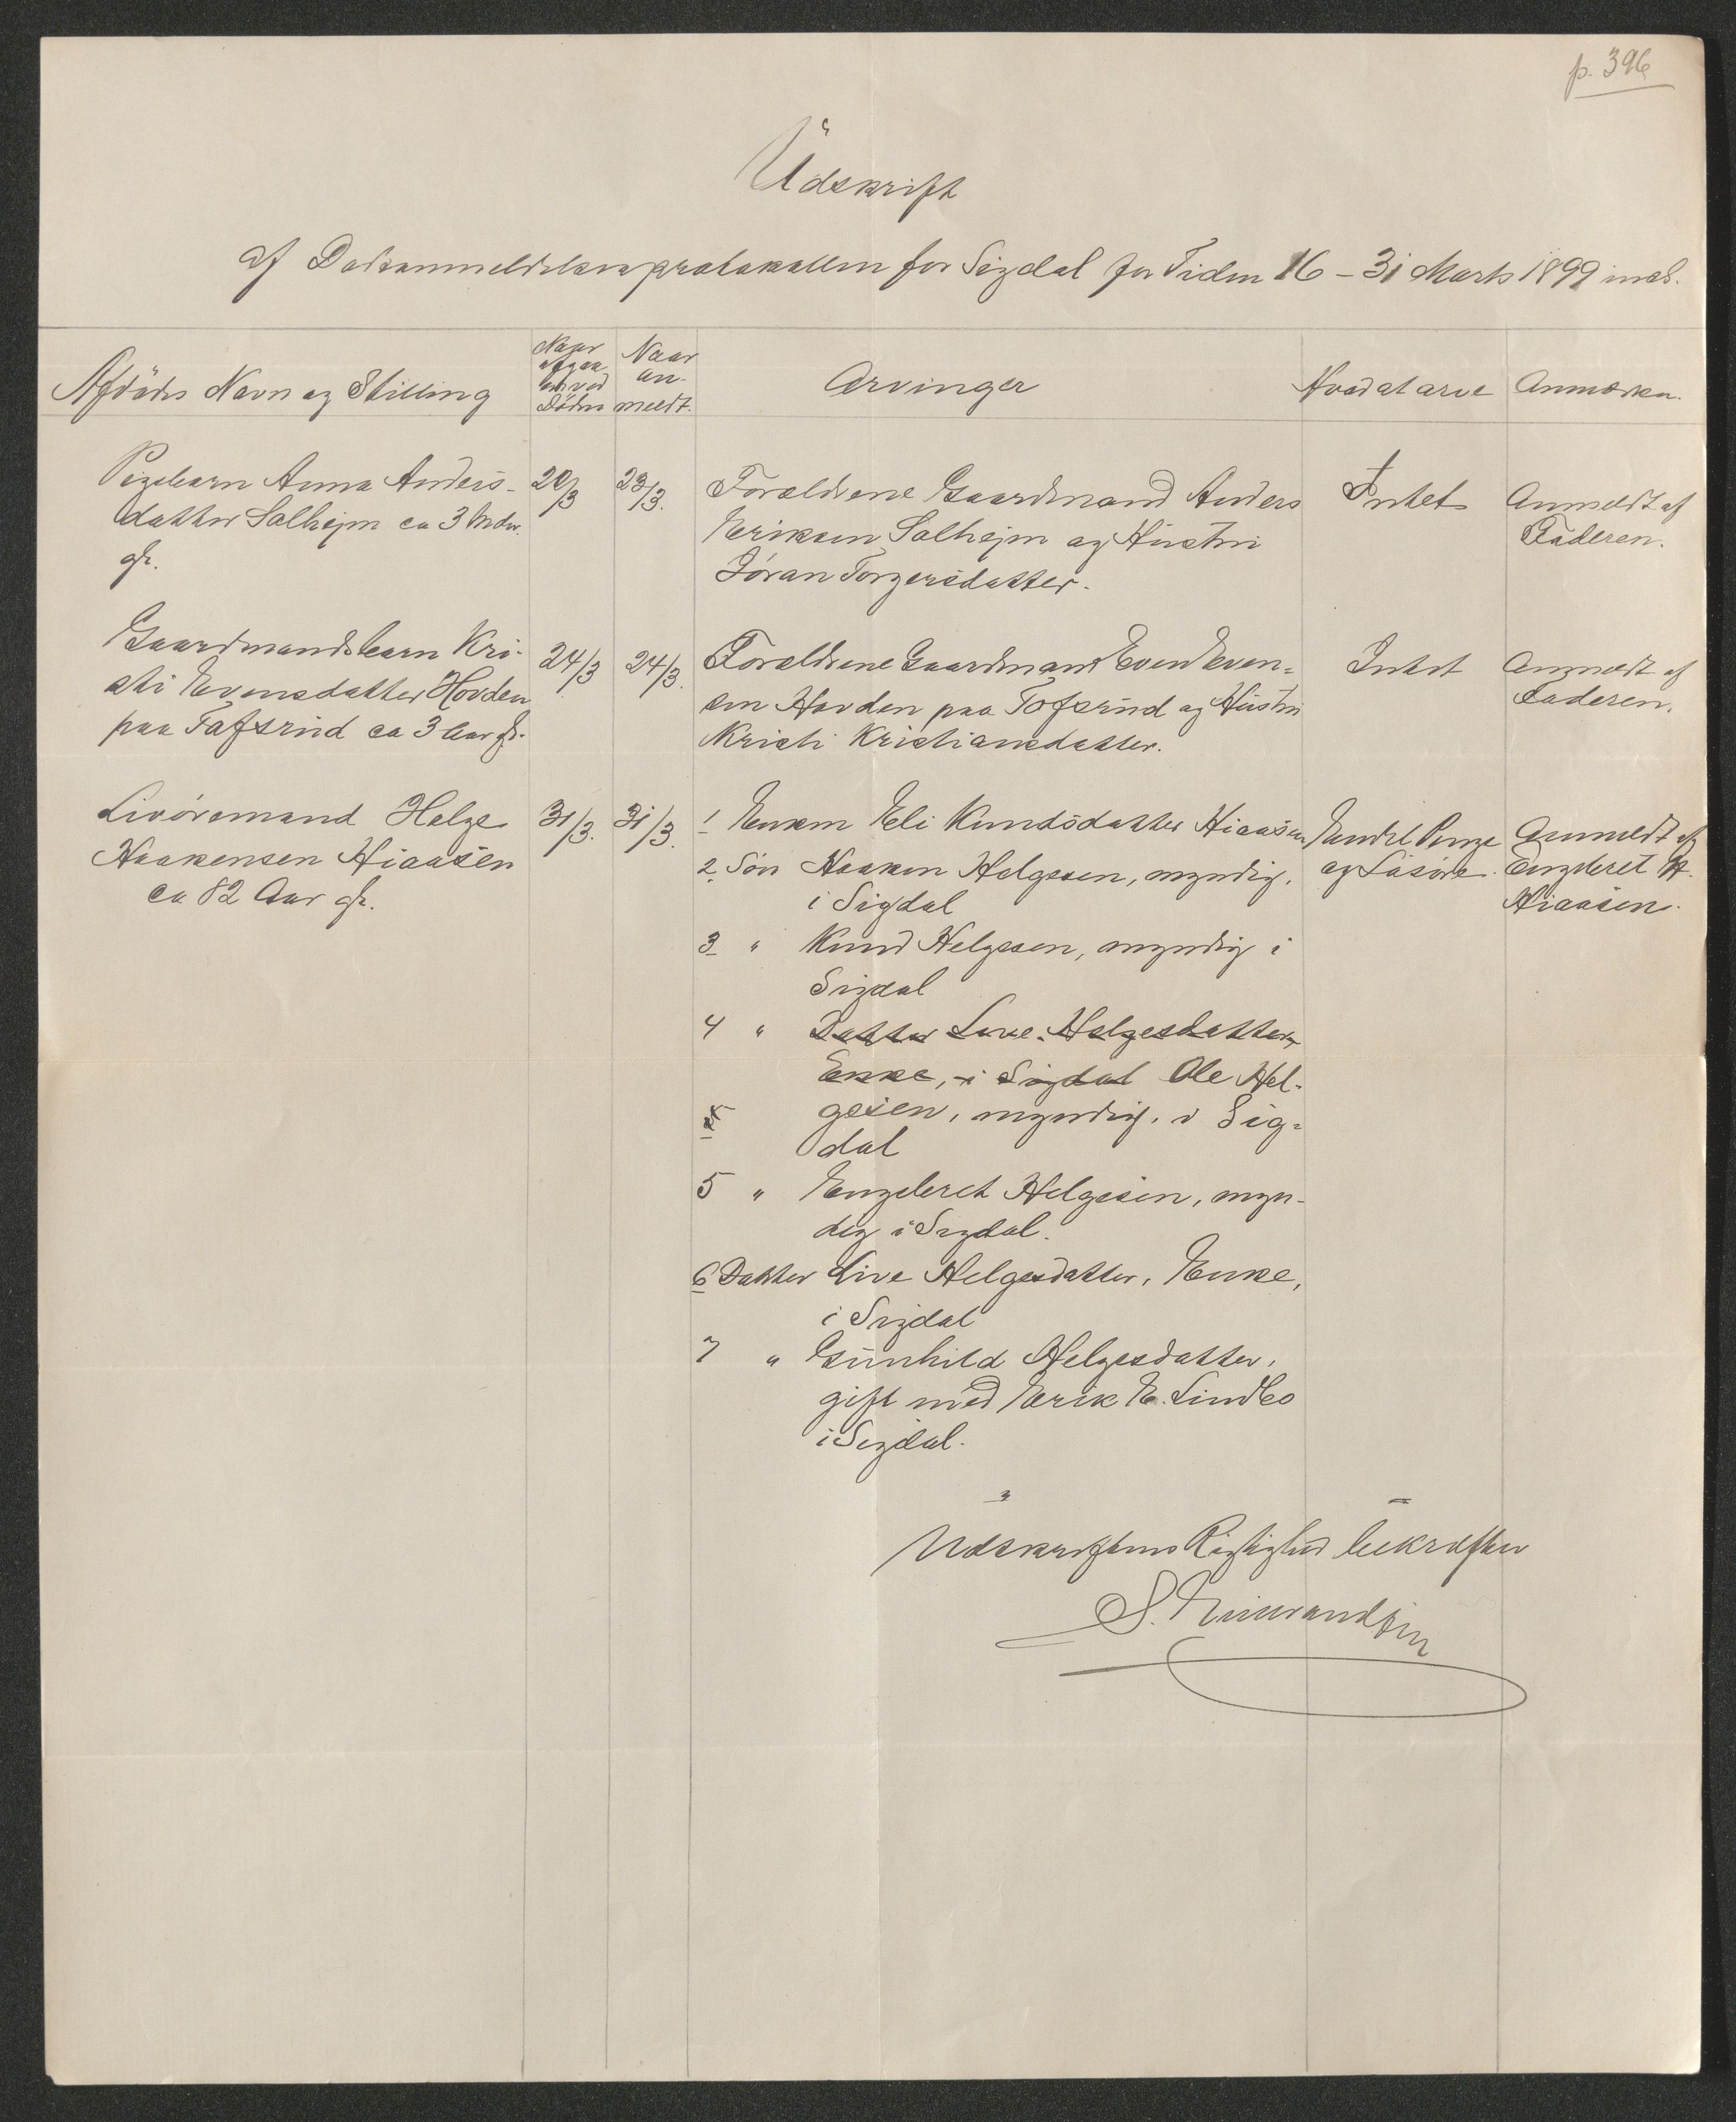 p. 396
Udskrift
af Dødsanmeldelsesprotokollen for Sigdal for Tiden 16 – 31 Marts 1899 incl.
Afdødes Navn og Stilling
Naar afgaaet ved Døden
Naar anmeldt.
Arvinger
Hvad at arve
Anmærkn.
Pigebarn Anna Anders-
datter Solheim ca 3 Mdr.
gl.
20/3
23/3.
Forældrene Gaardmand Anders
Eriksen Solheim og Hustru
Jøran Torgersdatter.
Intet
Anmeldt af
Faderen.
Gaardmandsbarn Kri-
sti Evensdatter Hovden
paa Tofsrud ca 3 Aar gl.
24/3
24/3.
Forældrene Gaardmand Even Even-
sen Hovden paa Tofsrud og Hustru
Kristi Kristiansdatter.
Intet
Anmeldt af
Faderen.
Livøremand Helge
Haakensen Hiaasen
ca 82 Aar gl.
31/3.
31/3.
1 Enken Eli Knudsdatter Hiaasen
2. Søn Haaken Helgesen, myndig,
i Sigdal
3 " Knud Helgesen, myndig i
Sigdal
4 " Datter Live Helgesdatter,
Enke, i Sigdal Ole Hel-
gesen, myndig, i Sig-
dal
5 " Engebret Helgesen, myn-
dig i Sigdal.
6 Datter Live Helgesdatter, Enke,
i Sigdal
7 " Gunhild Helgesdatter,
gift med Erik E. Lindbo
i Sigdal.
Endel Penge
og Løsøre.
Anmeldt af
Engebret H.
Hiaasen.
Udskriftens Rigtighed bekræfter